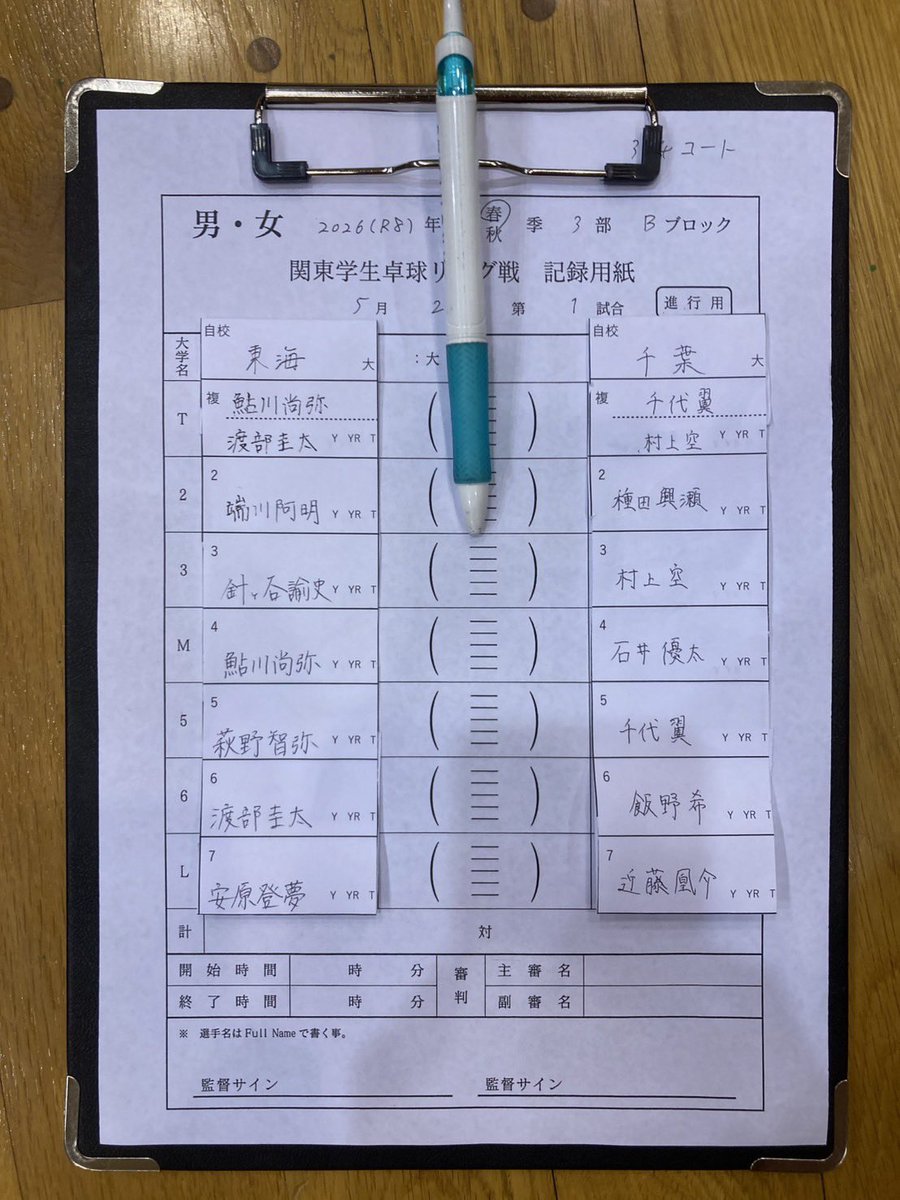 コート
男・女 2026(R8)年 春 秋 季 3部 Bブロック
関東学生卓球リーグ戦 記録用紙
5月 2 第 1 試合 進行用
大学名 自校 東海 大 :大 自校 千葉 大
T 複 鮎川尚弥 複 千代翼
渡部圭太 Y YR T 村上空 Y YR T
2 2 端川阿明 Y YR T 2 種田興瀬 Y YR T
3 3 針ヶ谷諭史 Y YR T 3 村上空 Y YR T
M 4 鮎川尚弥 Y YR T 4 石井優太 Y YR T
5 5 萩野智弥 Y YR T 5 千代翼 Y YR T
6 6 渡部圭太 Y YR T 6 飯野希 Y YR T
L 7 安原登夢 Y YR T 7 近藤凰介 Y YR T
計 対
開始時間 時 分 審判 主審名
終了時間 時 分 副審名
※ 選手名はFull Nameで書く事。
監督サイン 監督サイン